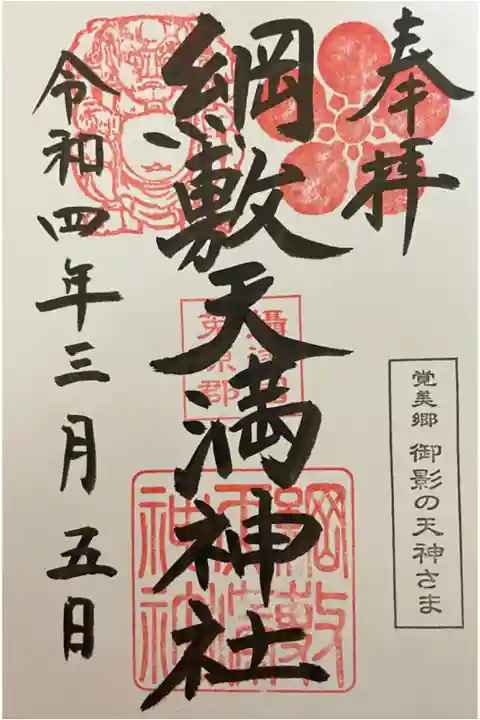 奉拝
綱敷天満神社
令和四年三月五日
攝津国
菟原郡
綱敷
天満
神社
覚美郷 御影の天神さま